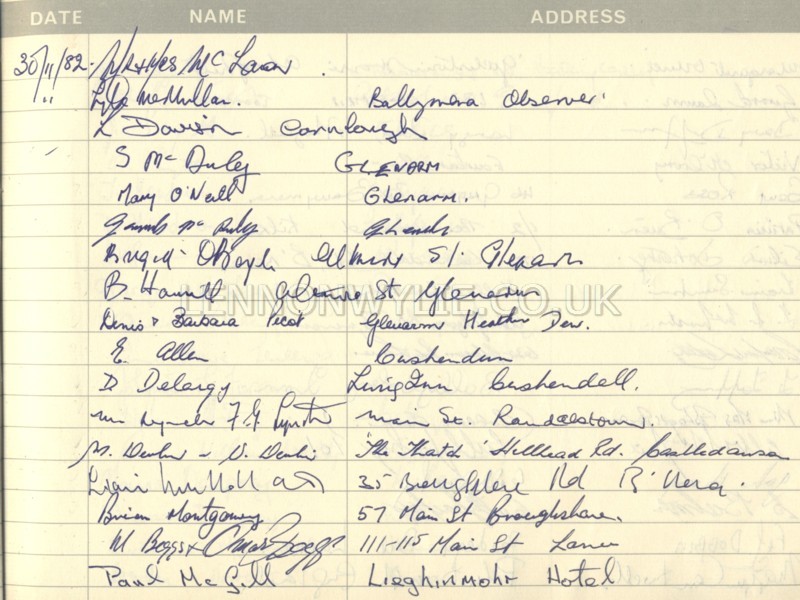 DATE NAME ADDRESS
30/11/82. Mr & Mrs McLaan.
" McMullan. Ballymena Observer.
L Davison Carnlough
S McAuley GLENARM
Mary O'Neill Glenarm.
McAuley Glenarm
Brigid O'Boyle St. Glenarm
B. St Glenarm
LENNONWYLIE.CO.UK
Denis & Barbara Picot Glenarm Heather Dew.
E. Allen Cushendun
D Delargy Lurig Inn Cushendall.
Lynch Main St. Randalstown.
"The Thatch" Hillhead Rd. Castledawson
35 Broughshane Rd B'Mena.
Brian Montgomery 57 Main St Broughshane.
M Boggs & Boggs 111-115 Main St Larne
Paul McGill Lieghinmohr Hotel